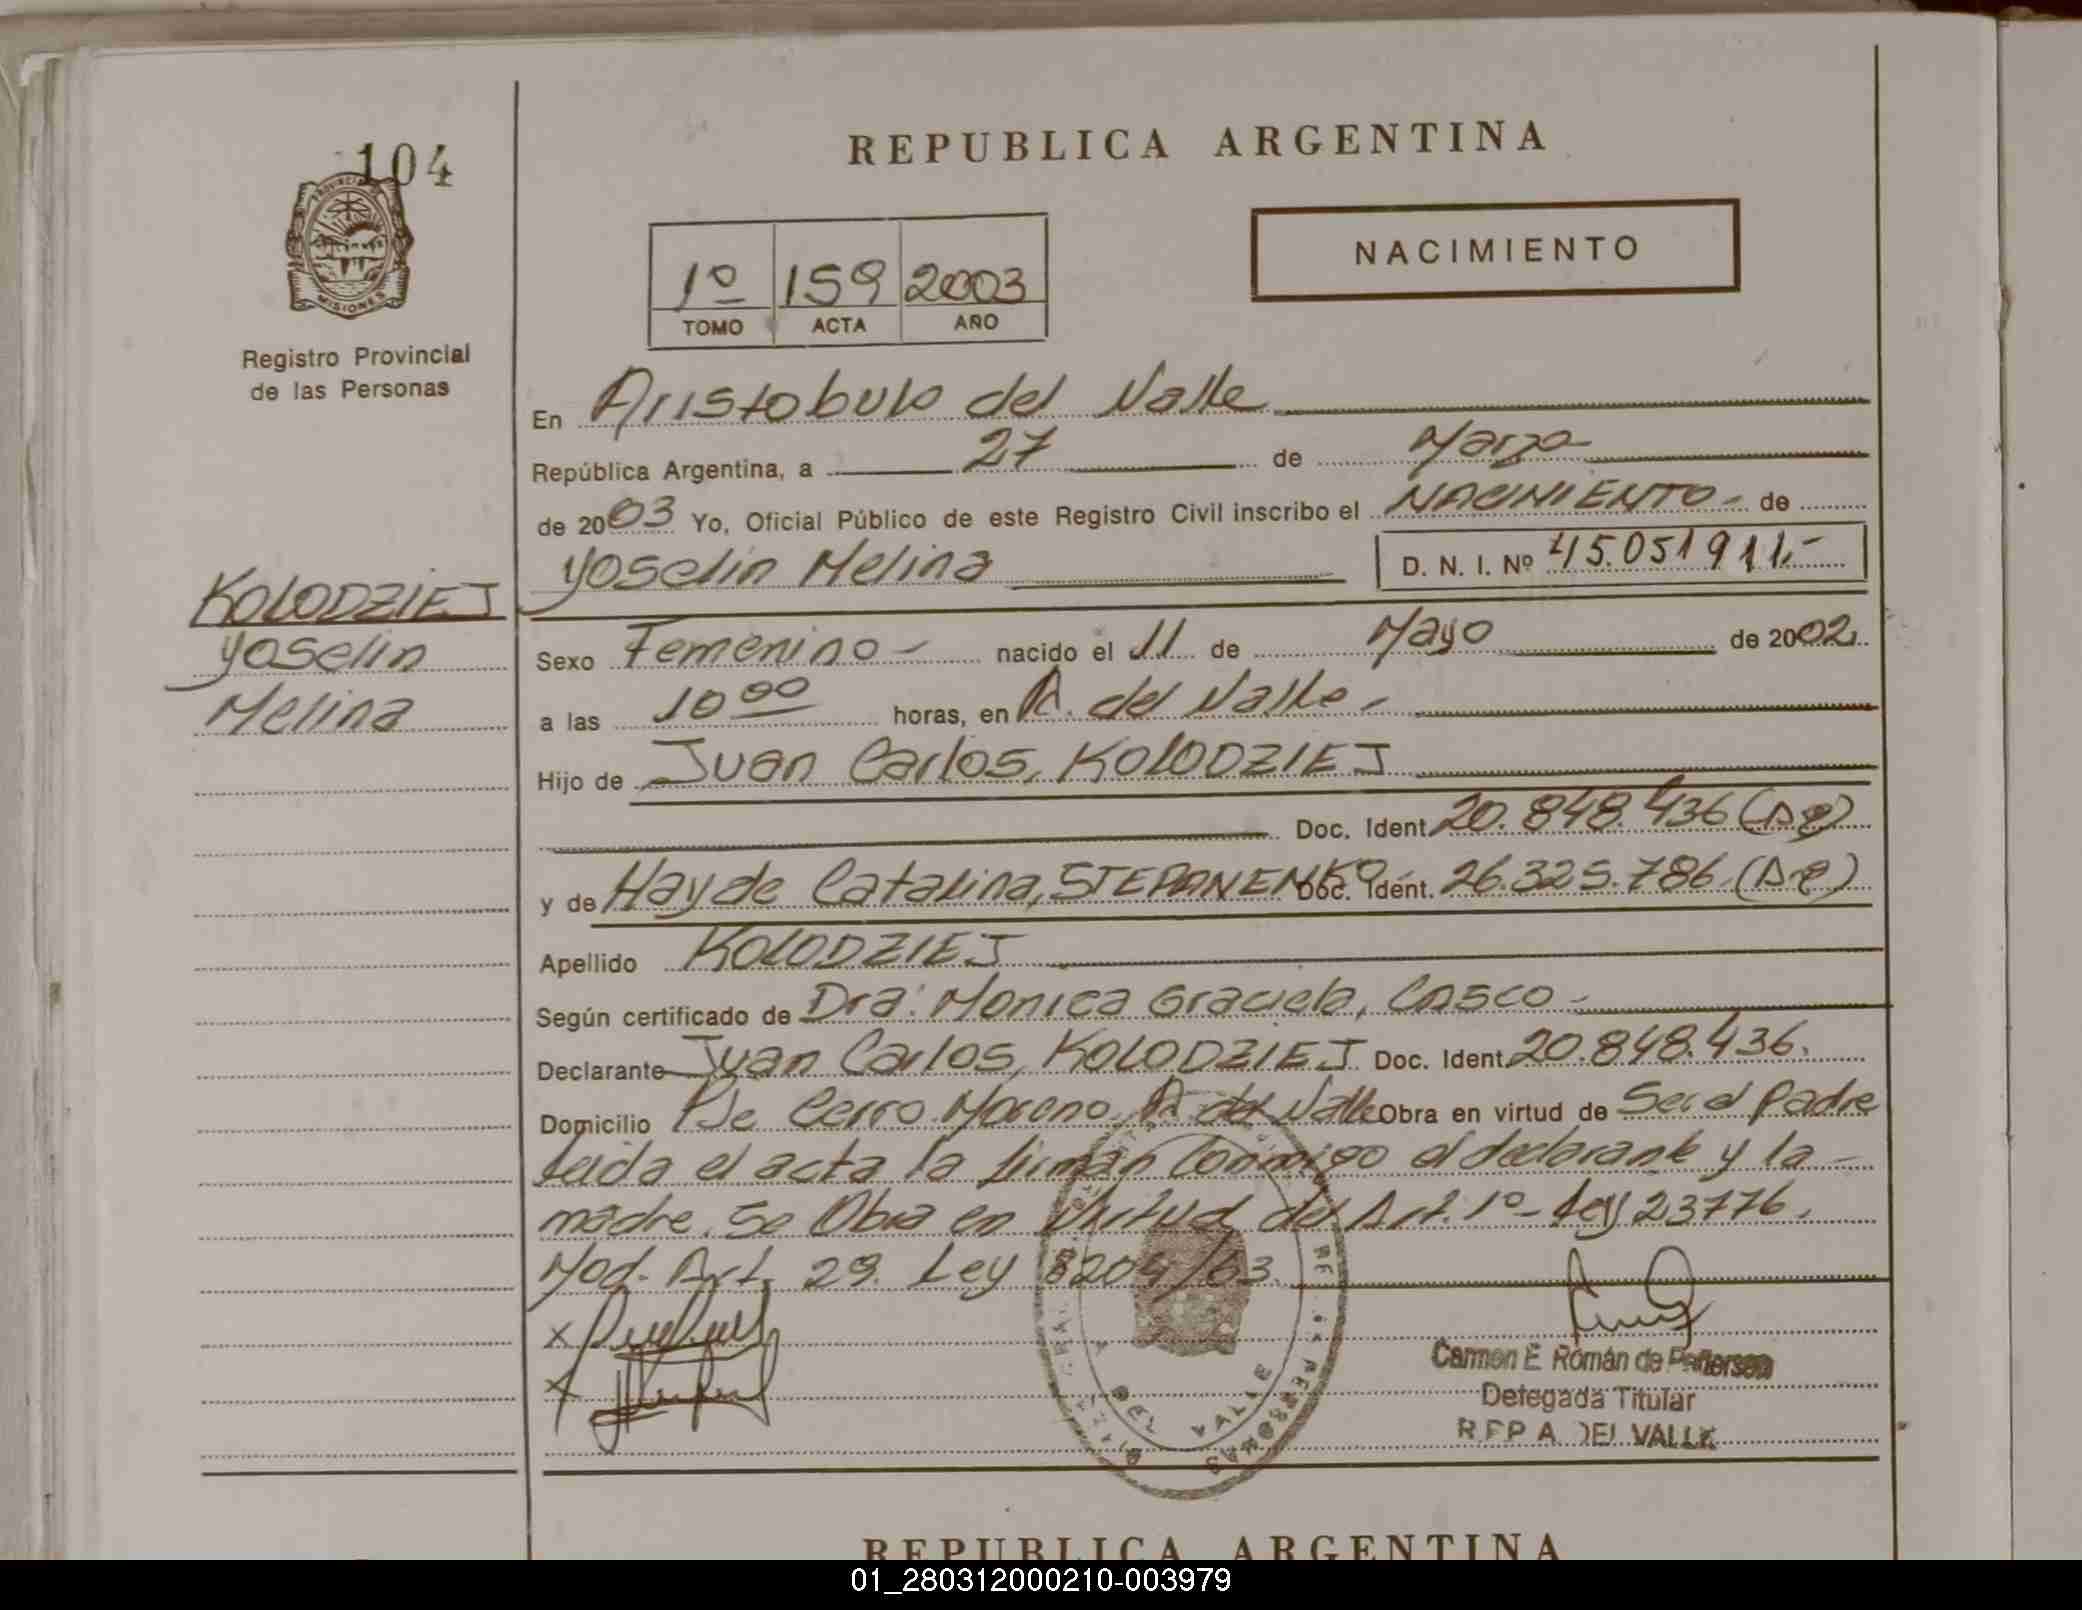 104
PROVINCIA DE
MISIONES
Registro Provincial
de las Personas
REPUBLICA ARGENTINA
1º 159 2003
TOMO ACTA AÑO
NACIMIENTO
En Aristobulo del Valle
República Argentina, a 27 de Marzo
de 2003 Yo, Oficial Público de este Registro Civil inscribo el NACIMIENTO - de
Yoselin Melina D. N. I. Nº 45.051911.-
KOLODZIEJ
Yoselin
Melina
Sexo Femenino - nacido el 11 de Mayo de 2002
a las 10 00 horas, en A. del Valle -
Hijo de Juan Carlos, KOLODZIEJ
Doc. Ident. 20.848.436
y de Hayde Catalina, STEPANENKO Doc. Ident. 26.325.786
Apellido KOLODZIEJ
Según certificado de Dra. Monica Graciela, Casco -
Declarante Juan Carlos, KOLODZIEJ Doc. Ident. 20.848.436.
Domicilio Pje Cerro Moreno A del Valle Obra en virtud de Ser el Padre
Leida el acta la firman conmigo el declarante y la
madre. Se Obra en Virtud del Art. 1º - Ley 23776.
Mod. Art. 29. Ley 8204/63.
DEL VALLE
PERSONAS
Carmen E. Román de
Delegada Titular
R.P.P A. DEL VALLE
REPUBLICA ARGENTINA
01_280312000210-003979